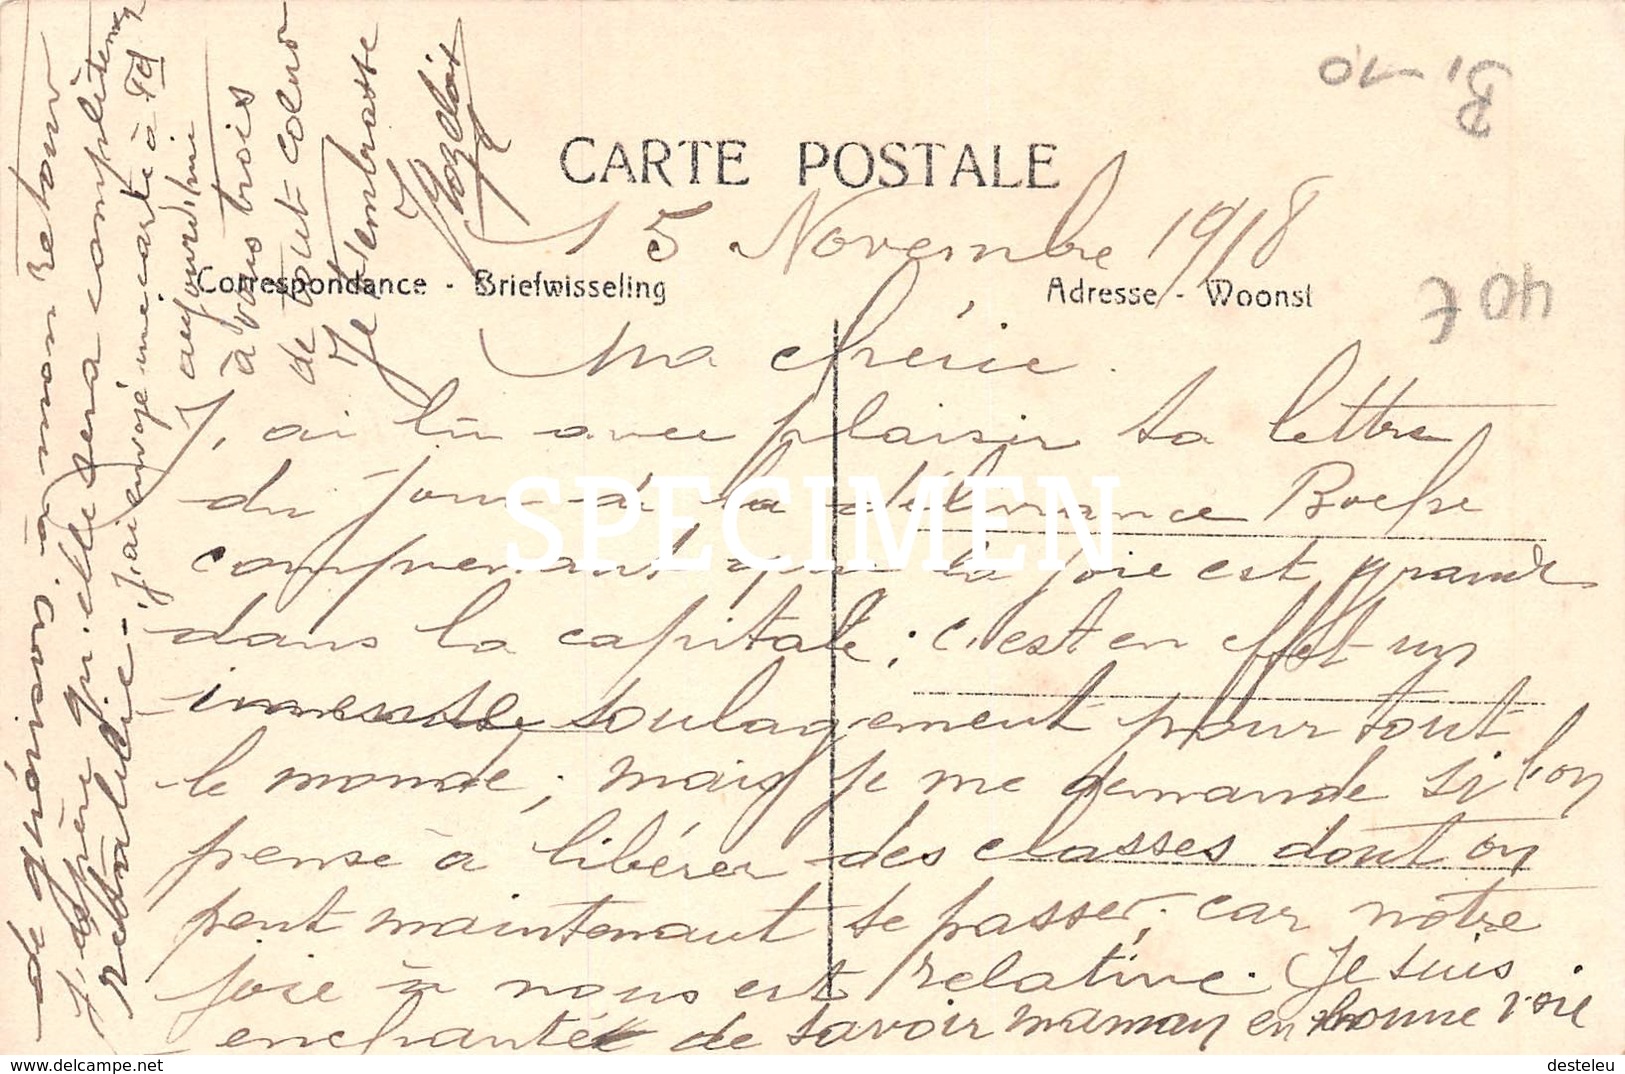 CARTE POSTALE
15 Novembre 1918
Correspondance - Briefwisseling
Adresse - Woonst
Ma chérie.
J'ai lu avec plaisir ta lettre
du jour de la délivrance Boche
comprenant que la joie est grande
dans la capitale; c'est en effet un
immense soulagement pour tout
le monde; mais je me demande si l'on
pense à libérer des classes dont on
peut maintenant se passer, car notre
joie à nous est relative. Je suis
enchanté de savoir maman en bonne voie
J'espère qu'elle sera complètement
rétablie - J'ai envoyé une carte à Fd
aujourd'hui
à vous trois
de tout coeur
Je t'embrasse
B, -10
40 €
SPECIMEN
delcampe.net
desteleu